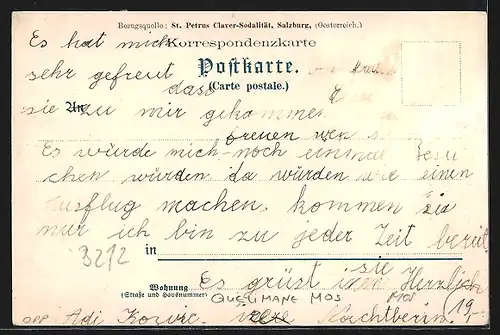 Bezugsquelle: St. Petrus Claver-Sodalität, Salzburg, (Oesterreich.)
Es hat mich
Korrespondenzkarte
sehr gefreut
Postkarte.
dass
(Carte postale.)
sie zu mir gekommen
freuen wen
Es würde mich noch einmal Besu
chen würden da würden wir einen
Ausflug machen. kommen sie
nur ich bin zu jeder Zeit bereit
3212
in
sie
Wohnung
(Straße und Hausnummer)
Es grüst Herzlich
QUELIMANE MOS
MOS
19,-
Adi